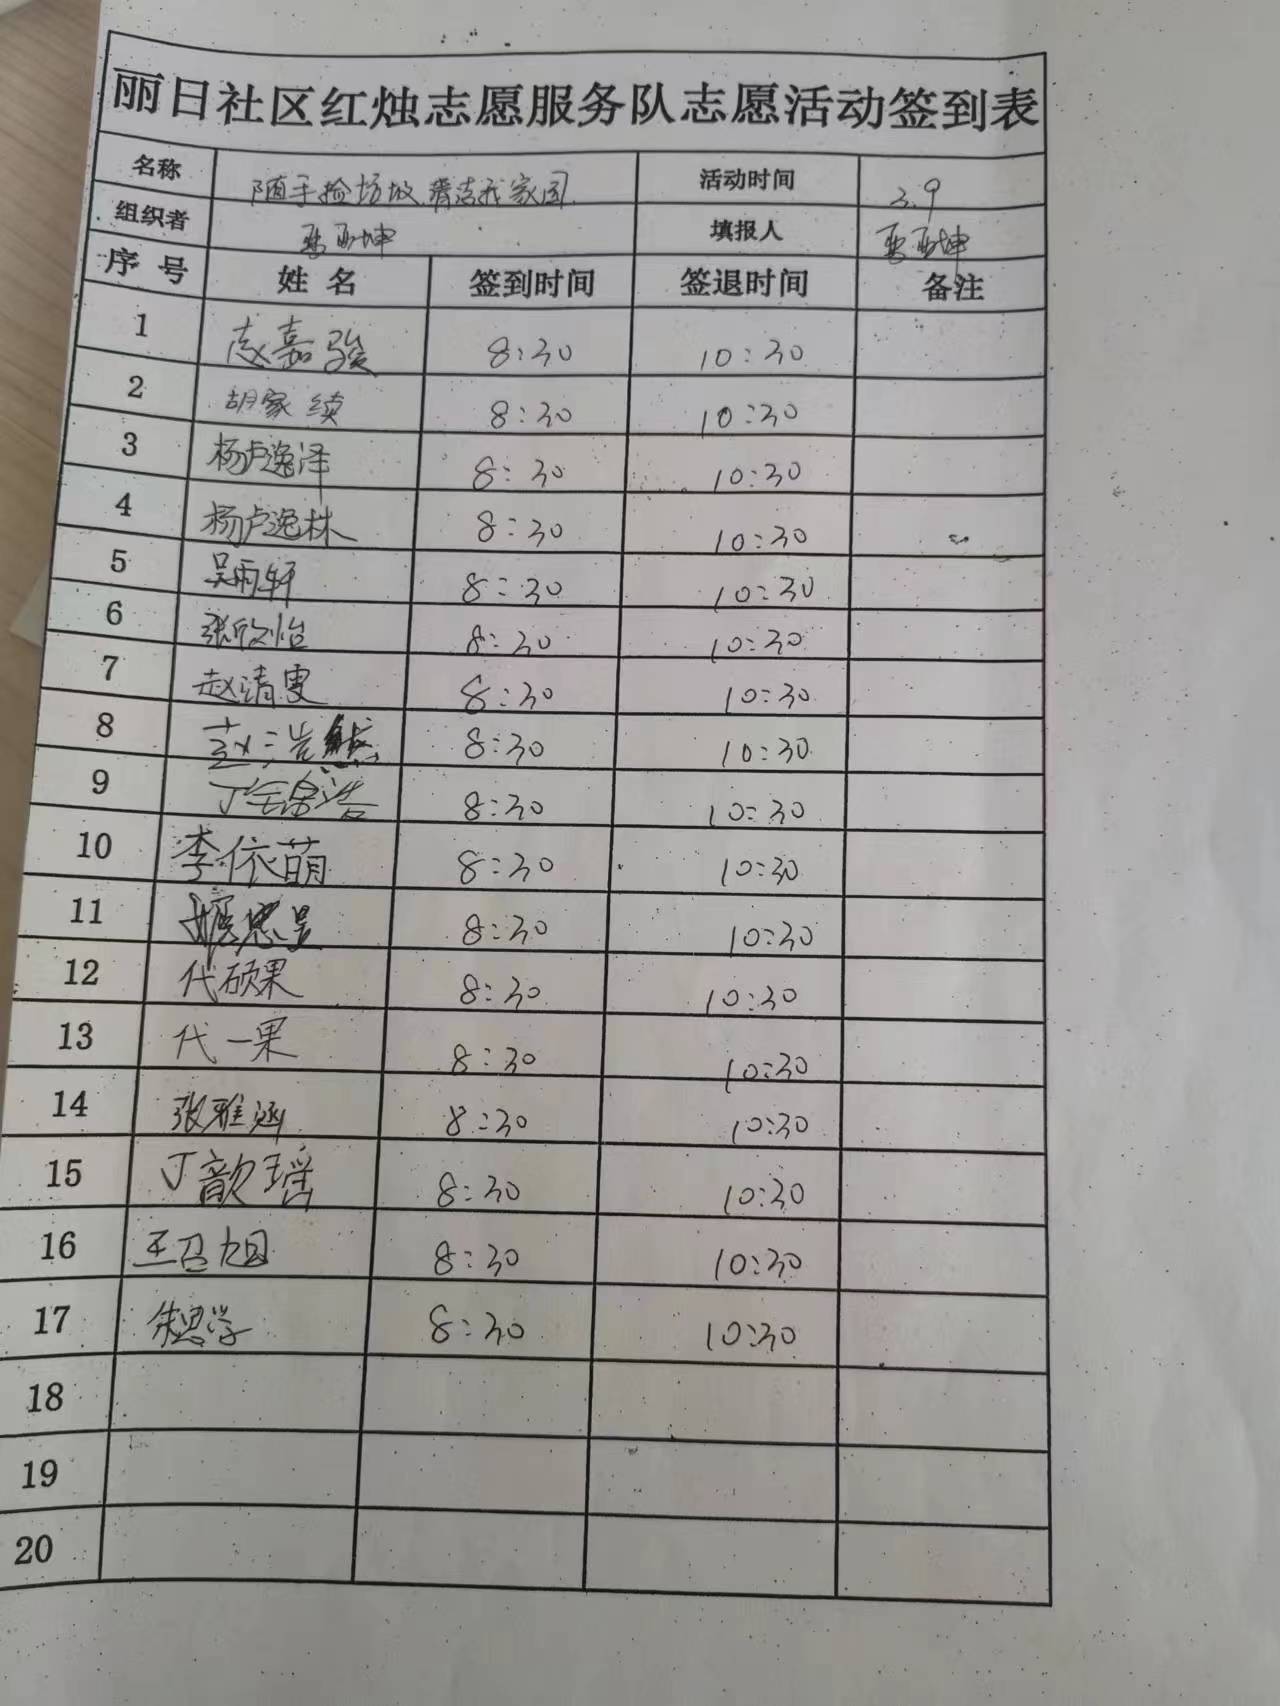 丽日社区红烛志愿服务队志愿活动签到表
名称 随手捡垃圾 清洁我家园 活动时间 3.9
组织者 亚坤 填报人 亚坤
序号 姓名 签到时间 签退时间 备注
1 赵嘉骏 8:30 10:30
2 胡家续 8:30 10:30
3 杨卢逸泽 8:30 10:30
4 杨卢逸林 8:30 10:30
5 吴雨轩 8:30 10:30
6 张欣怡 8:30 10:30
7 赵清雯 8:30 10:30
8 赵浩 8:30 10:30
9 丁 浩 8:30 10:30
10 李依萌 8:30 10:30
11 8:30 10:30
12 代硕果 8:30 10:30
13 代一果 8:30 10:30
14 张雅涵 8:30 10:30
15 丁歆瑶 8:30 10:30
16 王召旭 8:30 10:30
17 朱思学 8:30 10:30
18
19
20